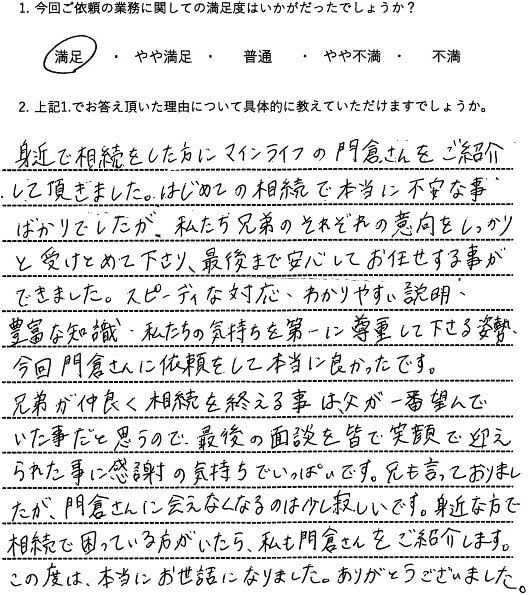 1. 今回ご依頼の業務に関しての満足度はいかがだったでしょうか？
満足 ・ やや満足 ・ 普通 ・ やや不満 ・ 不満
2. 上記1.でお答え頂いた理由について具体的に教えていただけますでしょうか。
身近で相続をした方にマインライフの門倉さんをご紹介
して頂きました。はじめての相続で本当に不安な事
ばかりでしたが、私たち兄弟のそれぞれの意向をしっかり
と受けとめて下さり、最後まで安心してお任せする事が
できました。スピーディな対応、わかりやすい説明、
豊富な知識、私たちの気持ちを第一に尊重して下さる姿勢、
今回門倉さんに依頼をして本当に良かったです。
兄弟が仲良く相続を終える事は、父が一番望んで
いた事だと思うので、最後の面談を皆で笑顔で迎え
られた事に感謝の気持ちでいっぱいです。兄も言っておりまし
たが、門倉さんに会えなくなるのは少し寂しいです。身近な方で
相続で困っている方がいたら、私も門倉さんをご紹介します。
この度は、本当にお世話になりました。ありがとうございました。